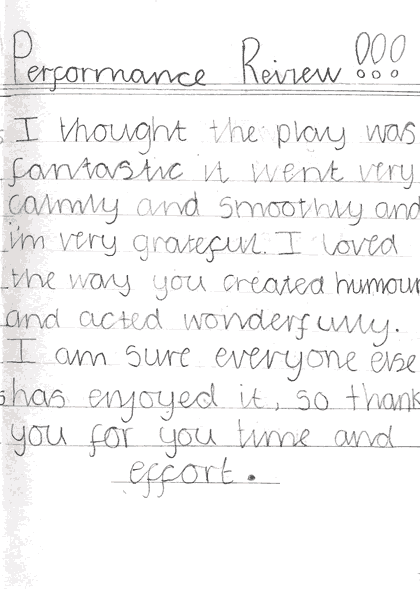 Performance Review !!!
I thought the play was
fantastic it went very
calmly and smoothly and
i'm very grateful. I loved
the way you created humour
and acted wonderfully.
I am sure everyone else
has enjoyed it, so thank
you for you time and
effort.